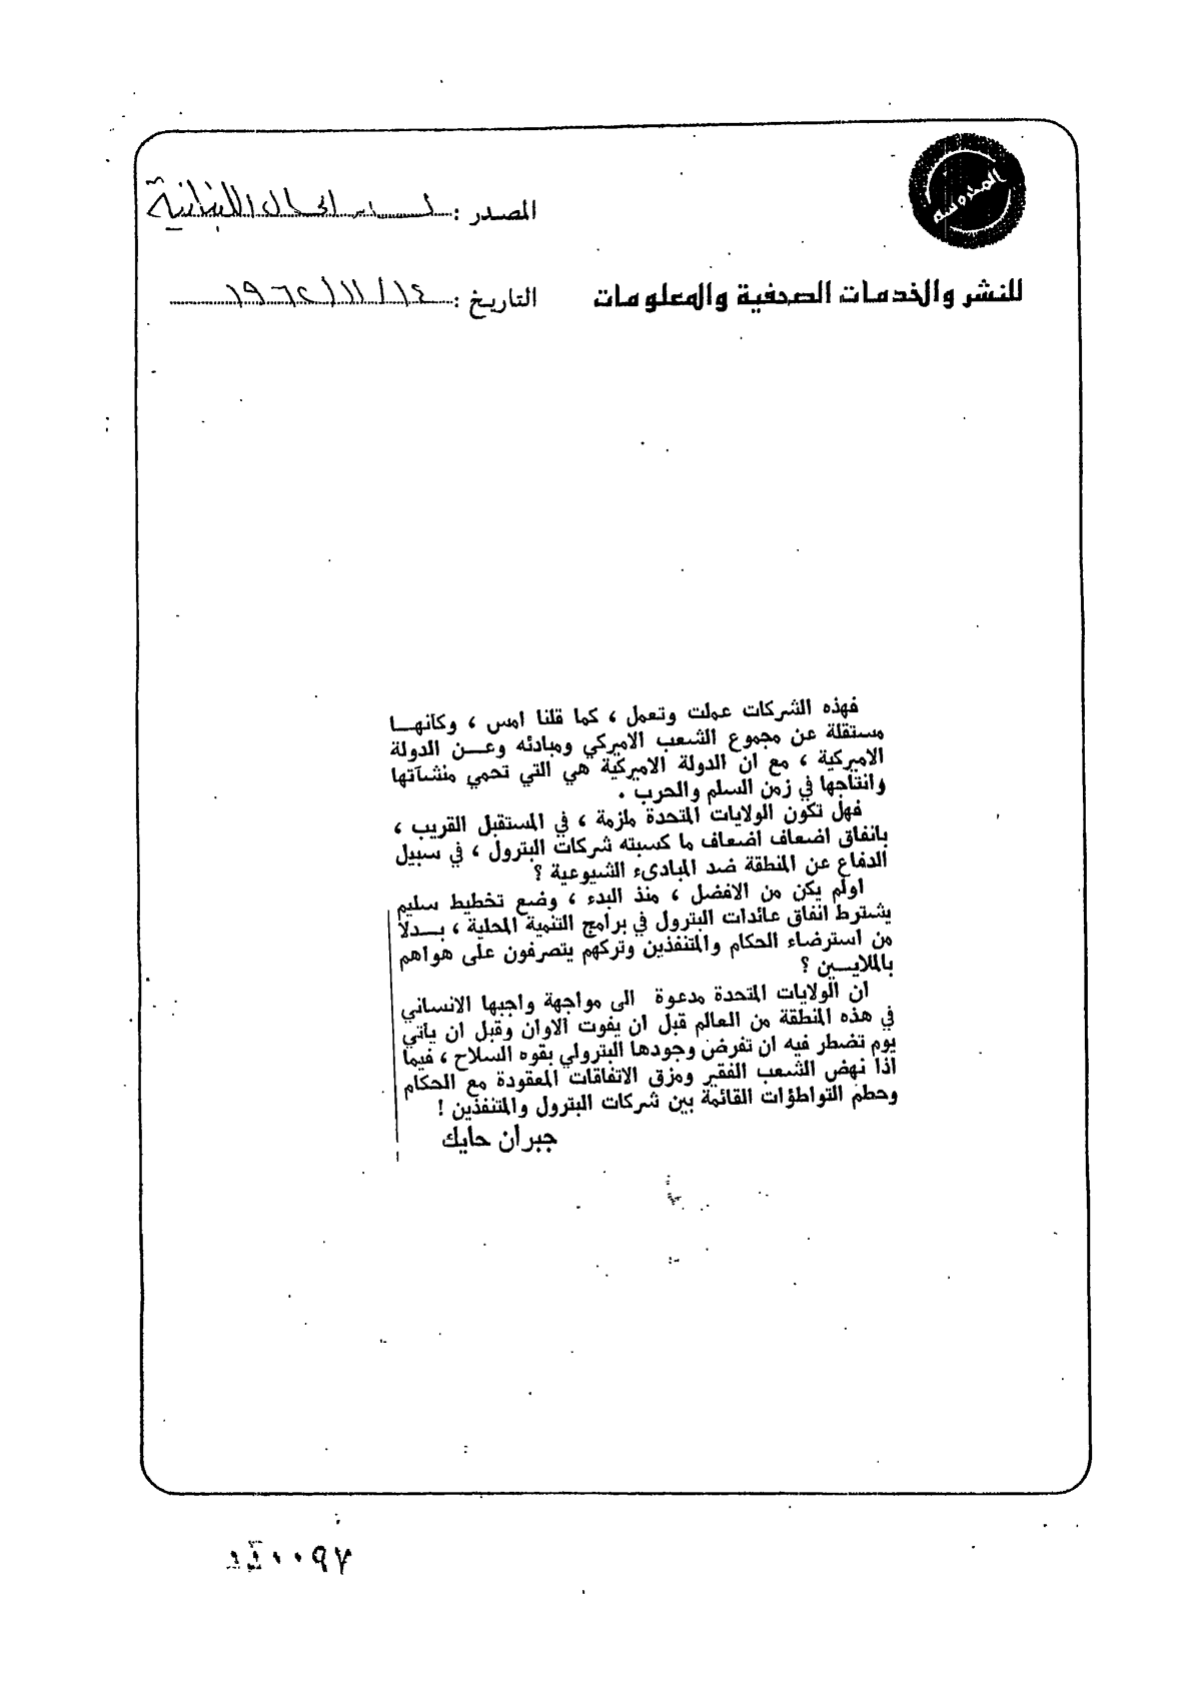 المحروسة
المصدر : لسان الحال اللبنانية
للنشر والخدمات الصحفية والمعلومات
التاريخ : ١٤ / ١١ / ١٩٦٢
فهذه الشركات عملت وتعمل ، كما قلنا امس ، وكانهـــا
مستقلة عن مجموع الشعب الاميركي ومبادئه وعـــن الدولة
الاميركية ، مع ان الدولة الاميركية هي التي تحمي منشآتها
وانتاجها في زمن السلم والحرب .
فهل تكون الولايات المتحدة ملزمة ، في المستقبل القريب ،
بانفاق اضعاف اضعاف ما كسبته شركات البترول ، في سبيل
الدفاع عن المنطقة ضد المبادىء الشيوعية ؟
اولم يكن من الافضل ، منذ البدء ، وضع تخطيط سليم
يشترط انفاق عائدات البترول في برامج التنمية المحلية ، بـــدلا
من استرضاء الحكام والمتنفذين وتركهم يتصرفون على هواهم
بالملايـــين ؟
ان الولايات المتحدة مدعوة الى مواجهة واجبها الانساني
في هذه المنطقة من العالم قبل ان يفوت الاوان وقبل ان ياتي
يوم تضطر فيه ان تفرض وجودها البترولي بقوه السلاح ، فيما
اذا نهض الشعب الفقير ومزق الاتفاقات المعقودة مع الحكام
وحطم التواطؤات القائمة بين شركات البترول والمتنفذين !
جبران حايك